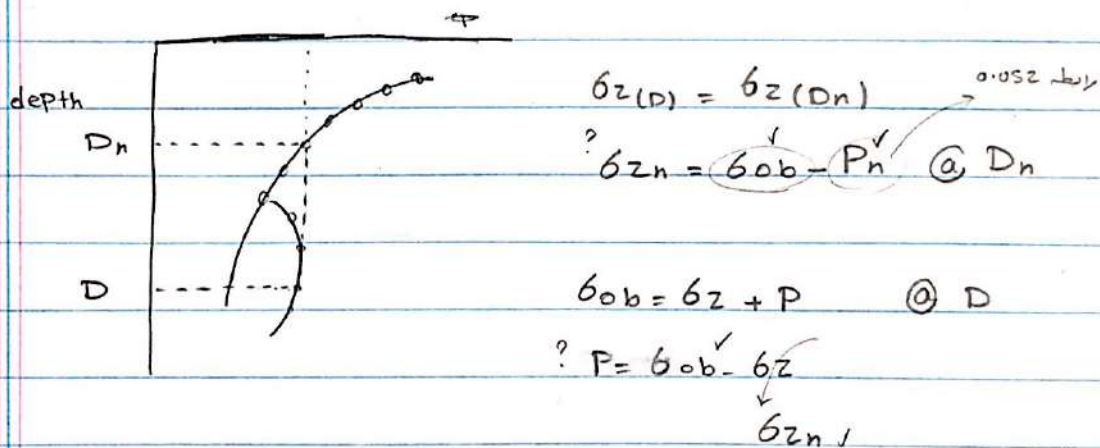 φ
depth
Dn
D
σz(D) = σz(Dn)
رابطه 0.052
? σzn = σob - Pn @ Dn
σob = σz + P @ D
? P = σob - σz
σzn